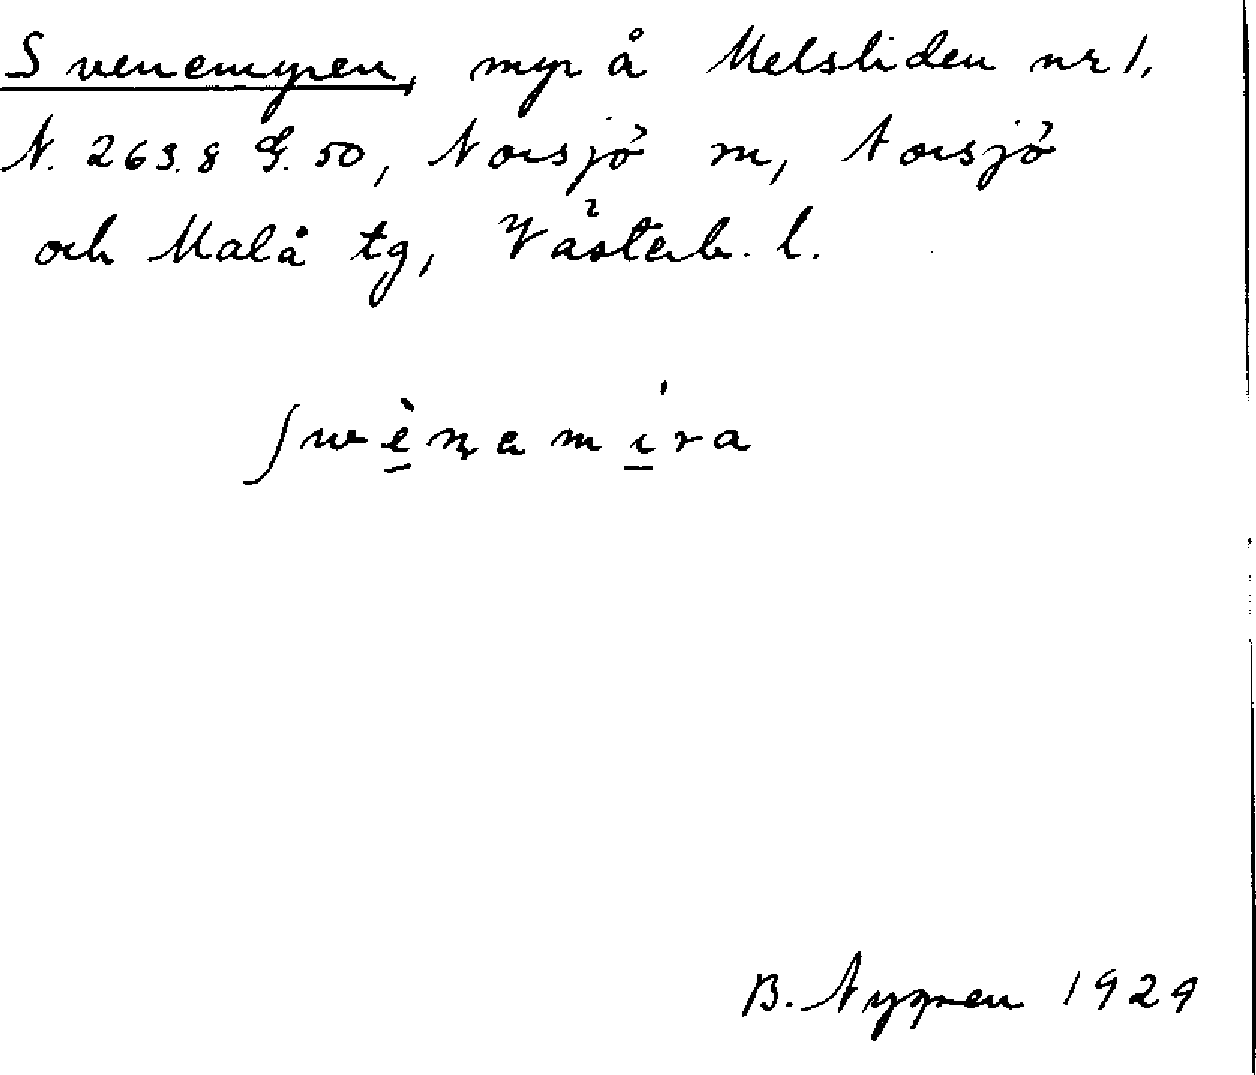 Svenemyren, myr å Melsliden nr 1,
N. 263.8 G. 50, Norsjö m, Norsjö
och Malå tg, Västerb. l.
ʃwènamíra
B. Nygren 1929